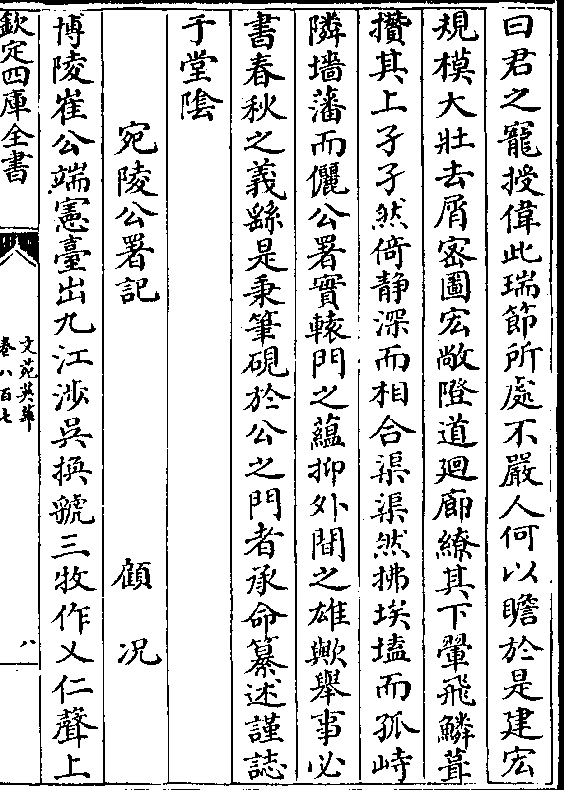 曰君之寵授偉此瑞節所處不嚴人何以瞻於是建宏
規模大壯去屑宻圖宏敞隥道廻廊繚其下翬飛鱗葺
攢其上孑孑然倚静深而相合渠渠然拂埃𡏖而孤峙
隣墻藩而儷公署實轅門之蘊抑外閫之雄歟舉事必
書春秋之義繇是秉筆硯於公之門者承命纂述謹誌
于堂隂
宛陵公署記 顧况
博陵崔公端憲臺出九江涉吳换虢三牧作乂仁聲上
欽定四庫全書
文苑英華
卷八百七
八